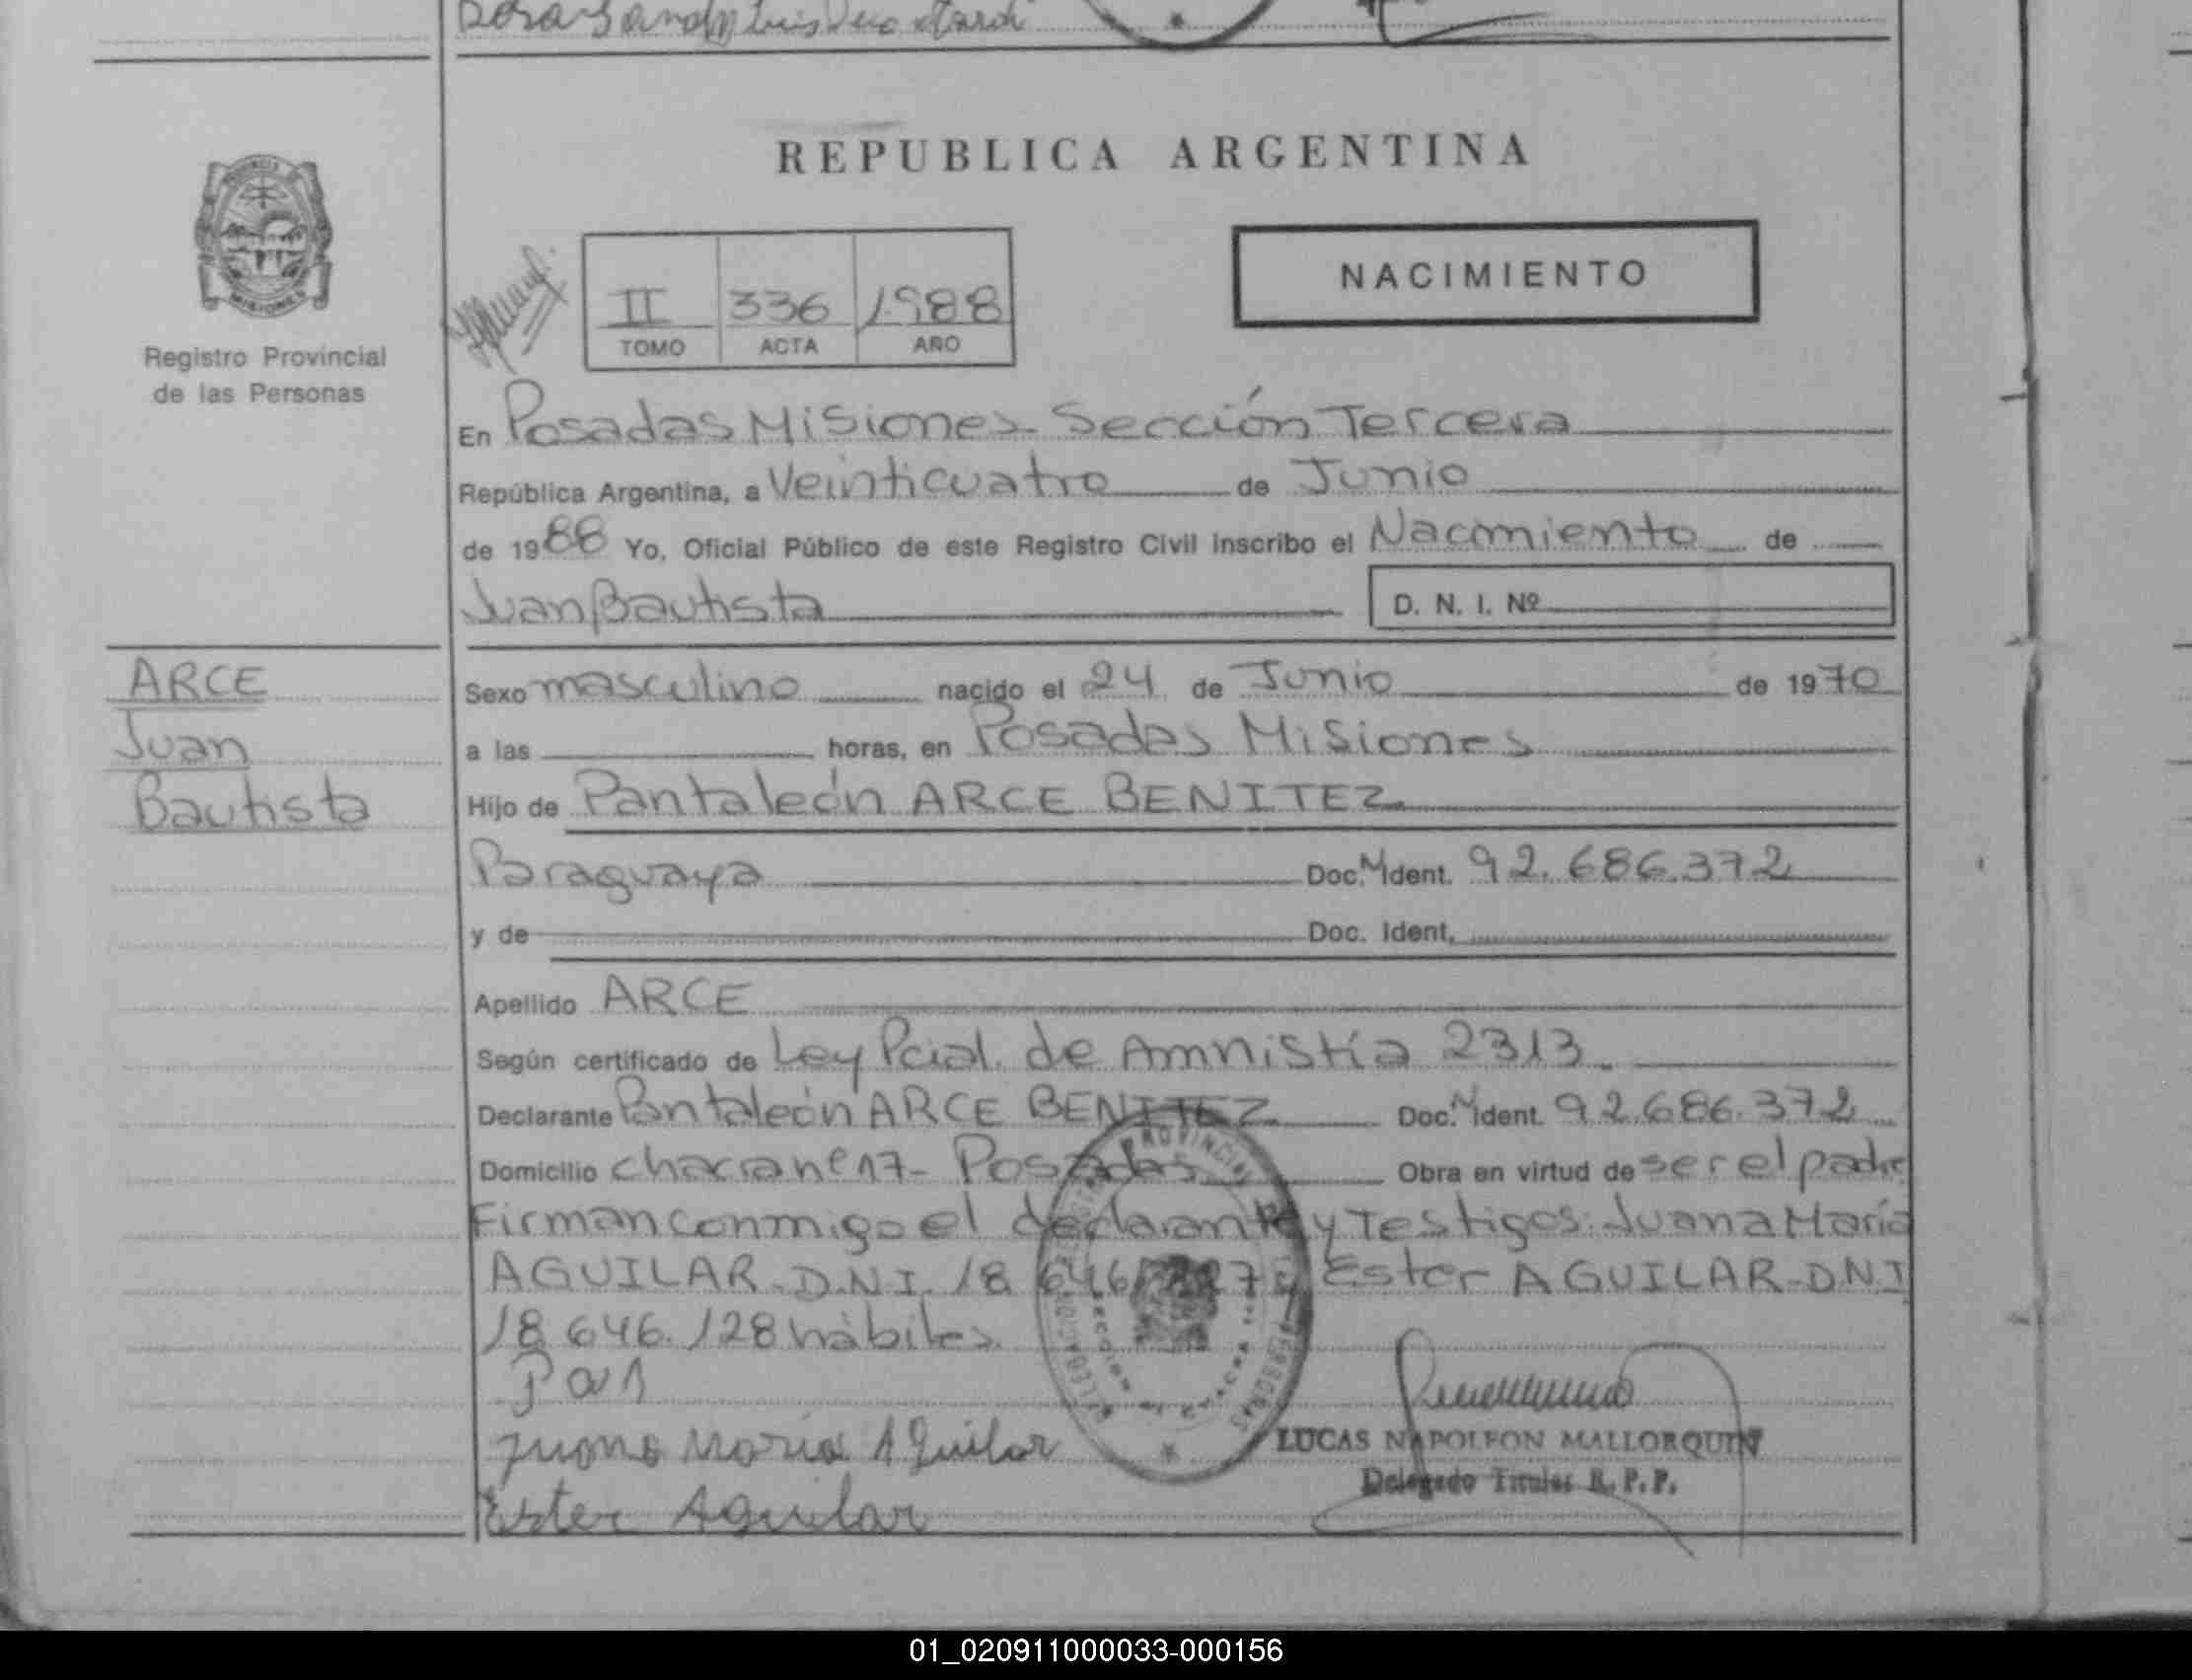 REPUBLICA ARGENTINA
PROVINCIA
MISIONES
Registro Provincial
de las Personas
II 336 1988
TOMO ACTA AÑO
NACIMIENTO
En Posadas Misiones Sección Tercera
República Argentina, a Veinticuatro de Junio
de 1988 Yo, Oficial Público de este Registro Civil inscribo el Nacimiento de
Juan Bautista
D. N. I. Nº
ARCE
Juan
Bautista
Sexo masculino nacido el 24 de Junio de 1970
a las horas, en Posadas Misiones
Hijo de Pantaleón ARCE BENITEZ
Paraguaya Doc. N Ident. 92.686.372
y de Doc. Ident.
Apellido ARCE
Según certificado de Ley Pcial. de Amnistía 2313
Declarante Pantaleón ARCE BENITEZ Doc. N Ident. 92.686.372
Domicilio chacra nº 17- Posadas Obra en virtud de ser el padre
Firman conmigo el declarante y Testigos: Juana María
AGUILAR-D.N.I. 18 646 Ester AGUILAR-DNI
18.646.128 hábiles
Juana Maria Aguilar
Ester Aguilar
LUCAS NAPOLEON MALLORQUIN
Delegado Titular R. P. P.
01_020911000033-000156